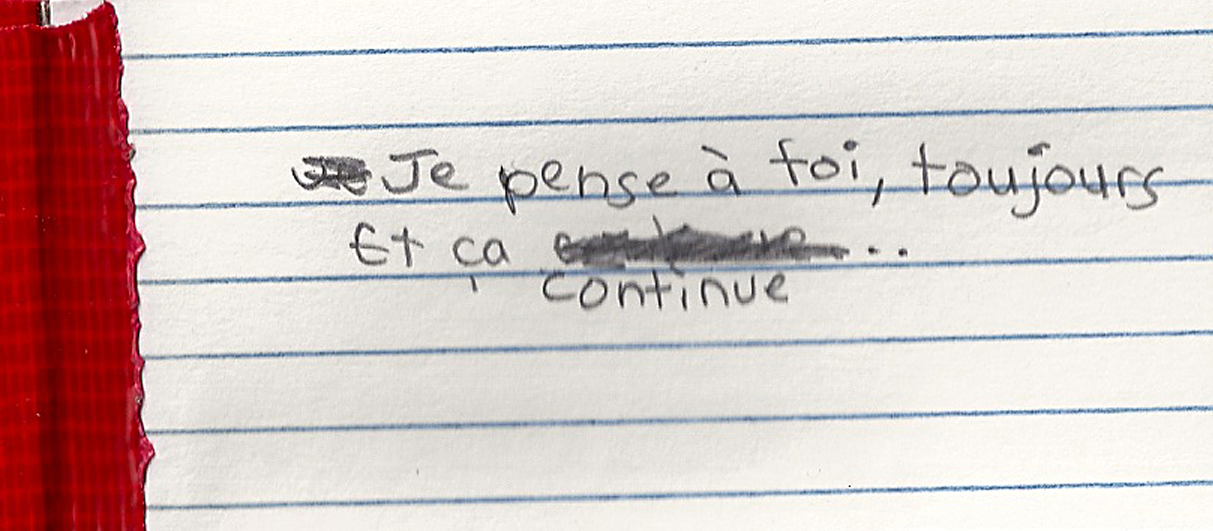 Je pense à toi, toujours
Et ça ...
continue